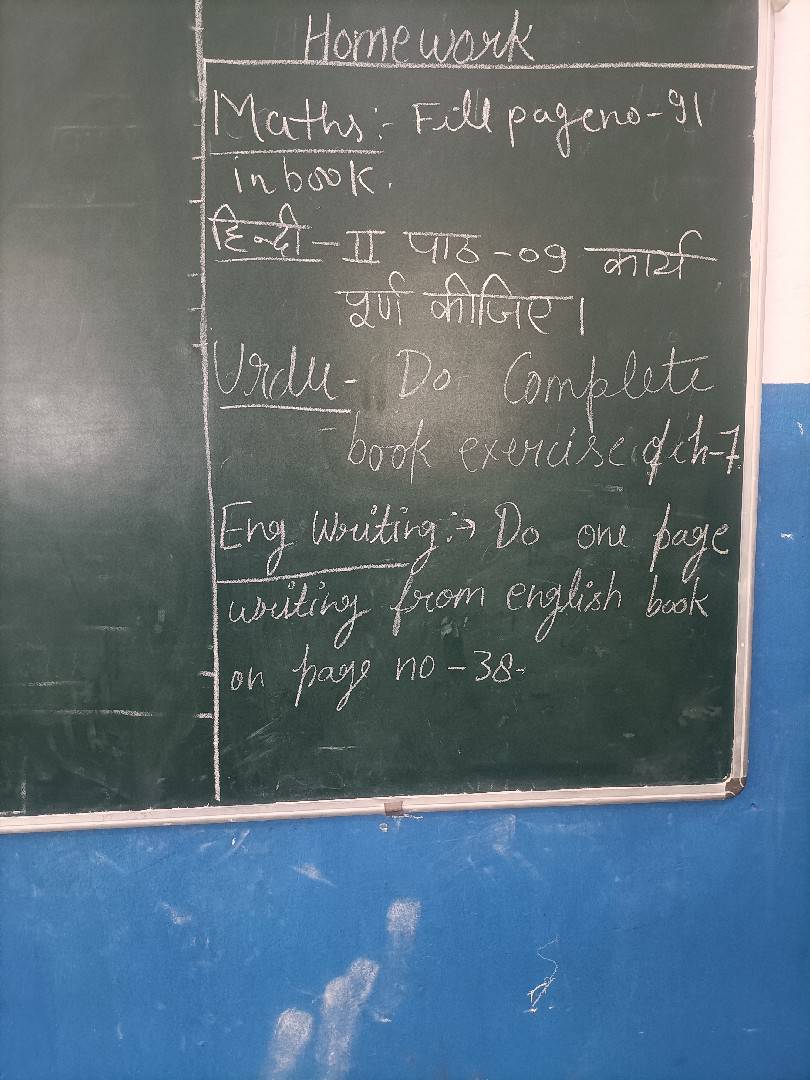 Homework
Maths:- Fill page no-91
in book.
हिन्दी-II पाठ-09 कार्य
पूर्ण कीजिए।
Urdu- Do Complete
book exercise of ch-7
Eng Writing:→ Do one page
writing from english book
on page no-38-